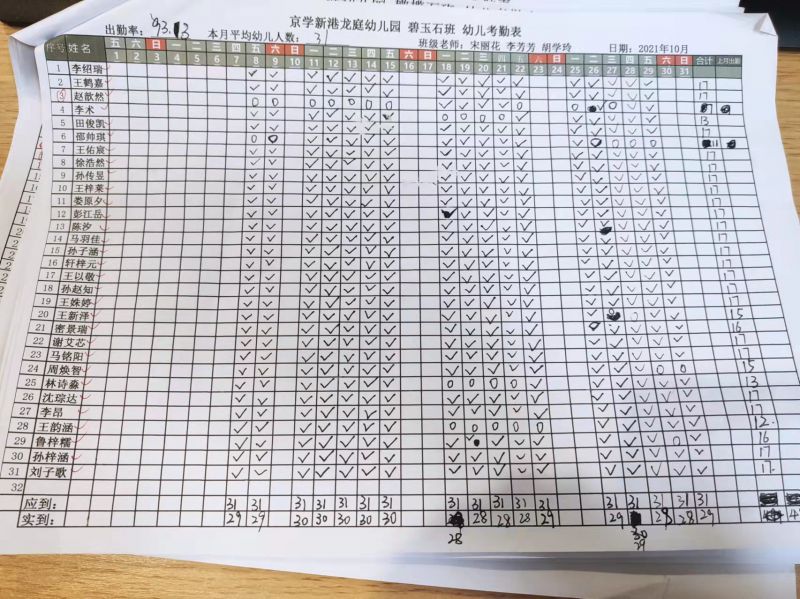 京学新港龙庭幼儿园 碧玉石班 幼儿考勤表
出勤率： 93.13 本月平均幼儿人数： 31 班级老师：宋丽花 李芳芳 胡学玲 日期：2021年10月
序号 姓名 五 六 日 一 二 三 四 五 六 日 一 二 三 四 五 六 日 一 二 三 四 五 六 日 一 二 三 四 五 六 日 合计 上月出勤
1 2 3 4 5 6 7 8 9 10 11 12 13 14 15 16 17 18 19 20 21 22 23 24 25 26 27 28 29 30 31
1 李绍瑞 17
2 王鹤嘉 17
3 赵歆然 17
4 李术
5 田俊凯 13
6 邵帅琪 17
7 王佑宸
8 徐浩然 17
9 孙传昱 17
10 王梓莱 17
11 娄原夕 17
12 彭江岳 17
13 陈汐 17
14 马羽佳 17
15 孙子涵 17
16 轩梓元 17
17 王以敬 17
18 孙赵知 17
19 王姝婷 17
20 王新泽 15
21 密景瑞 16
22 谢艾芯 17
23 马铭阳 17
24 周焕智 15
25 林诗淼 13
26 沈琮达 17
27 李昂 17
28 王韵涵 12
29 鲁梓糯 16
30 孙梓涵 17
31 刘子歌 17
32
应到： 31 31 31 31 31 31 31 31 31 31 31 31 31 31 31 31 31
实到： 29 29 30 30 30 30 30 28 28 28 29 29 28 28 29
28 30